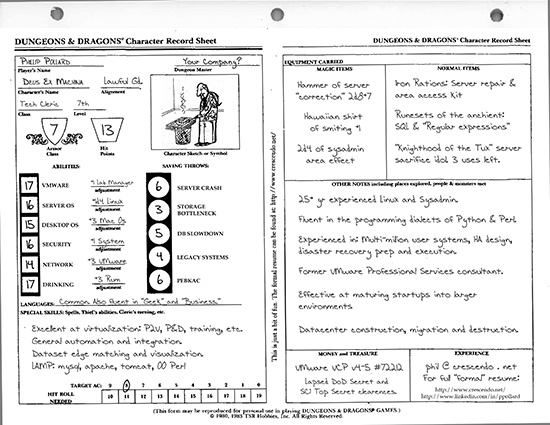 DUNGEONS & DRAGONS® Character Record Sheet
Philip Pollard
Player's Name
Your Company?
Dungeon Master
Deus Ex Machina
Character's Name
Lawful Gd.
Alignment
Tech Cleric
Class
7th
Level
7
Armor
Class
13
Hit
Points
Character Sketch or Symbol
ABILITIES:
SAVING THROWS:
17 VMWARE +1 Lab Manager
adjustment
16 SERVER OS +d4 Linux
adjustment
15 DESKTOP OS +3 Mac OS
adjustment
16 SECURITY +1 System
adjustment
14 NETWORK +3 VMware
adjustment
17 DRINKING +3 Rum
adjustment
6 SERVER CRASH
3 STORAGE
BOTTLENECK
5 DB SLOWDOWN
4 LEGACY SYSTEMS
6 PEBKAC
LANGUAGES: Common. Also fluent in "Geek" and "Business."
SPECIAL SKILLS: Spells, Thief's abilities, Cleric's turning, etc.
Excellent at virtualization: P2V, P&D, training, etc.
General automation and integration.
Dataset edge matching and visualization.
LAMP: mysql, apache, tomcat, OO Perl
TARGET AC: 9 8 7 6 5 4 3 2 1 0
HIT ROLL
NEEDED 10 11 12 13 14 15 16 17 18 19
This is just a bit of fun. The formal resume can be found at: http://www.crescendo.net/
DUNGEONS & DRAGONS® Character Record Sheet
EQUIPMENT CARRIED
MAGIC ITEMS
NORMAL ITEMS
Hammer of server
"correction" 2d8+7
Hawaiian shirt
of smiting +1
2d4 of sysadmin
area effect
Iron Rations: Server repair &
area access kit
Runesets of the anchient:
SQL & "Regular expressions"
"Knighthood of the Tux" server
sacrifice idol 3 uses left.
OTHER NOTES including places explored, people & monsters met
25+ yr experienced linux and Sysadmin.
Fluent in the programming dialects of Python & Perl
Experienced in: Multi-million user systems, HA design,
disaster recovery prep and execution.
Former VMware Professional Services consultant.
Effective at maturing startups into larger
environments
Datacenter construction, migration and destruction.
MONEY and TREASURE
VMware VCP v4-5 #72212
lapsed DoD Secret and
SCI Top Secret clearences.
EXPERIENCE
phil @ crescendo . net
For full "formal" resume:
http://www.crescendo.net/
http://www.linkedin.com/in/ppollard
(This form may be reproduced for personal use in playing DUNGEONS & DRAGONS® GAMES.)
© 1980, 1983 TSR Hobbies, Inc. All Rights Reserved.